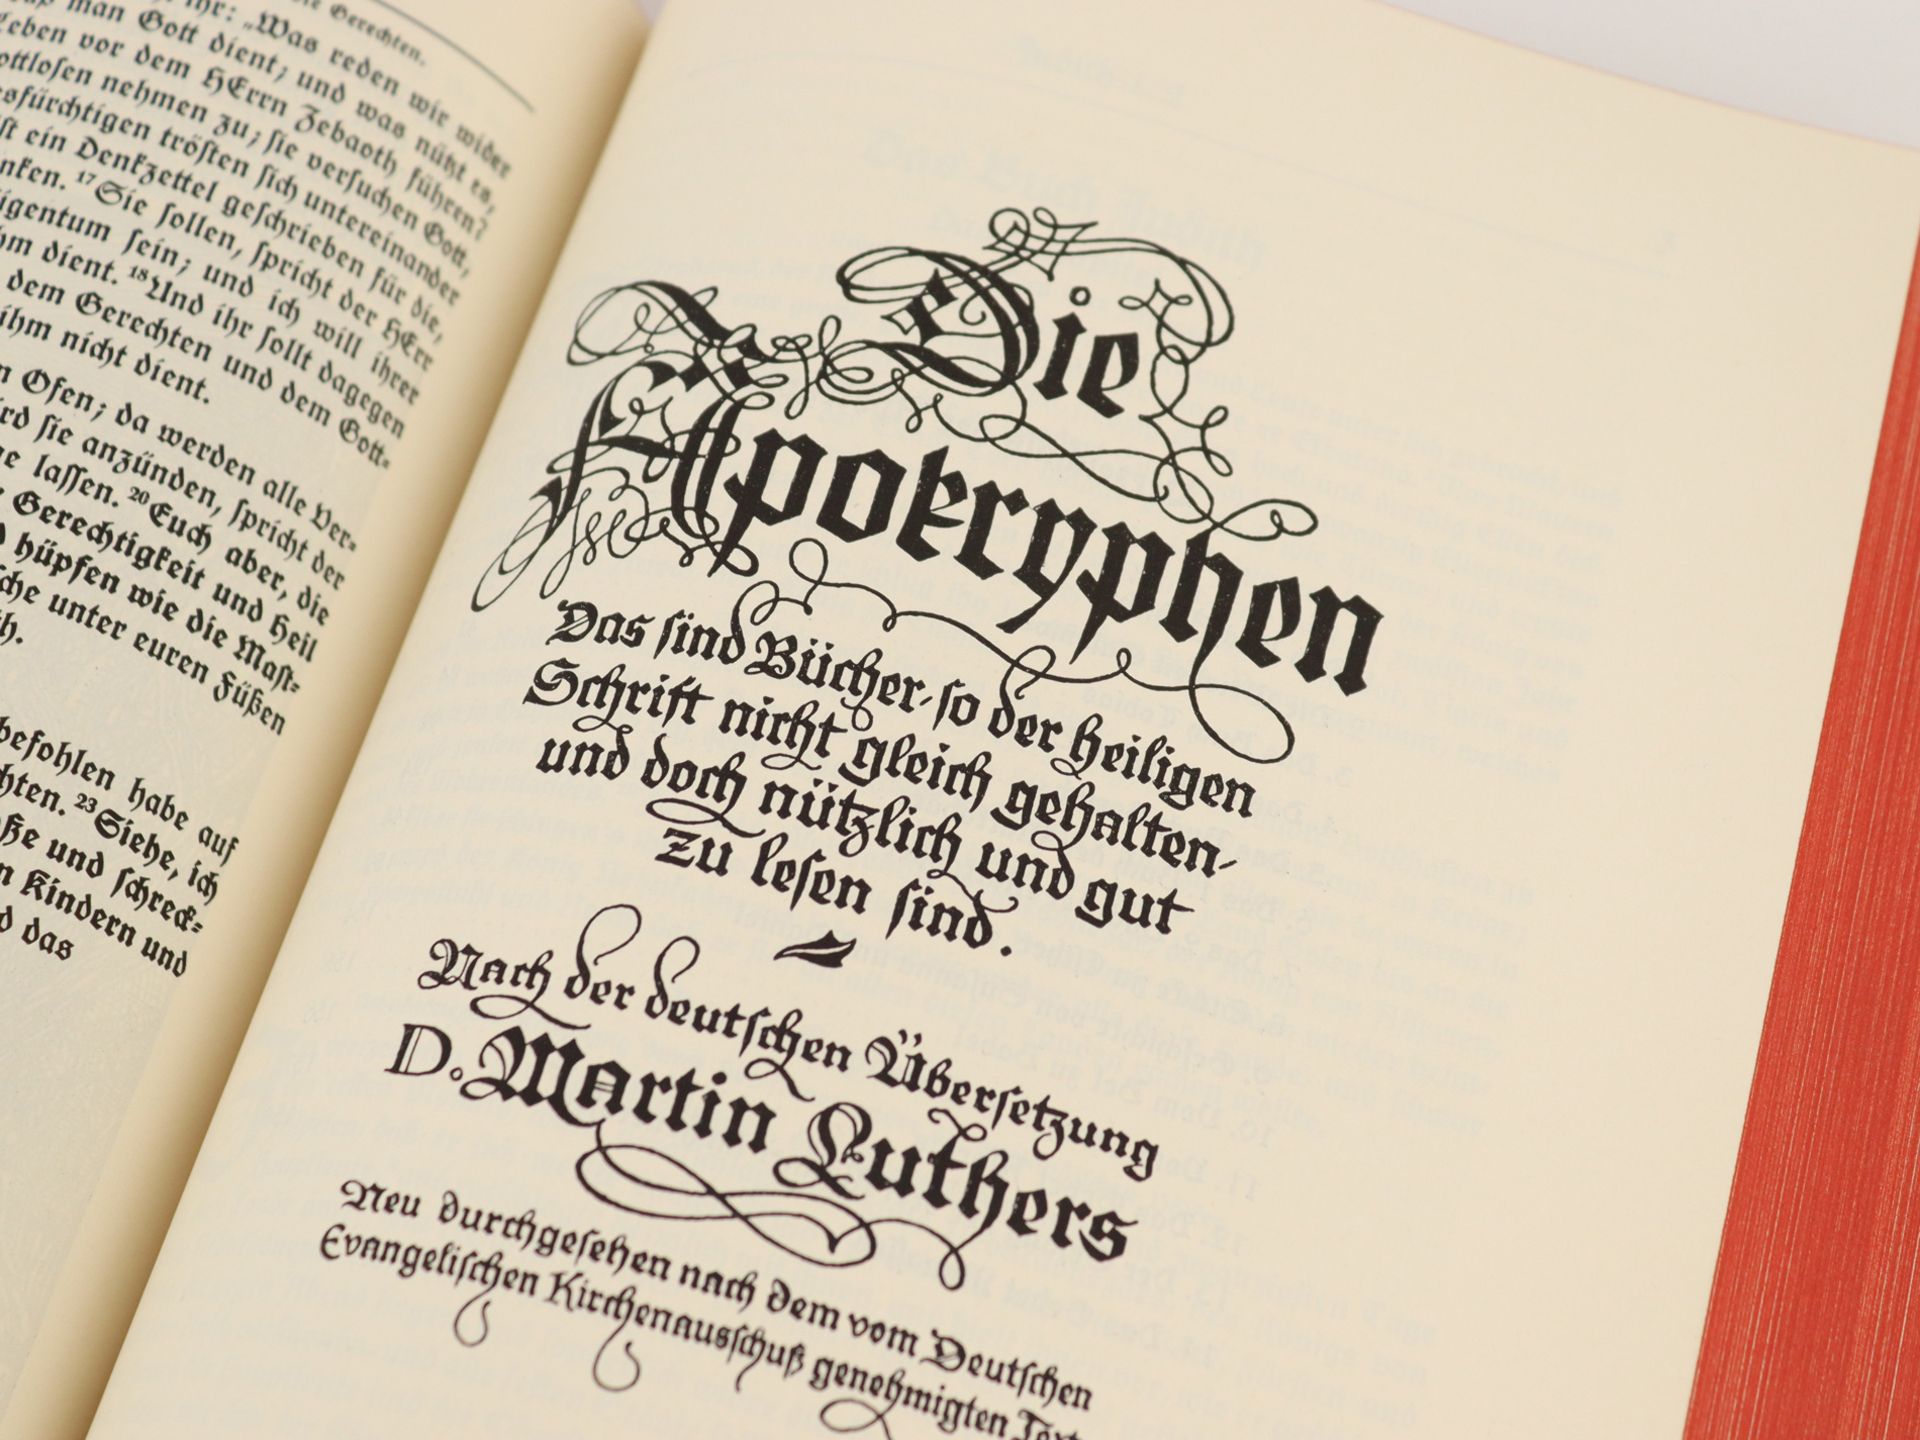 die Gerechten.
ihr: „Was reden wir wider
man Gott dient; und was nützt es,
Leben vor dem HErrn Zebaoth führen?
ottlosen nehmen zu; sie versuchen Gott,
esfürchtigen trösten sich untereinander
ist ein Denkzettel geschrieben für die,
nken. 17Sie sollen, spricht der HErr
igentum sein; und ich will ihrer
hm dient. 18Und ihr sollt dagegen
dem Gerechten und dem Gott-
ihm nicht dient.
n Ofen; da werden alle Ver-
rd sie anzünden, spricht der
ne lassen. 20Euch aber, die
Gerechtigkeit und Heil
d hüpfen wie die Mast-
sche unter euren Füßen
h.
befohlen habe auf
chten. 23Siehe, ich
oße und schreck-
n Kindern und
d das
Die
Apokryphen
Das sind Bücher, so der heiligen
Schrift nicht gleich gehalten,
und doch nützlich und gut
zu lesen sind.
Nach der deutschen Übersetzung
D. Martin Luthers
Neu durchgesehen nach dem vom Deutschen
Evangelischen Kirchenausschuß genehmigten Text